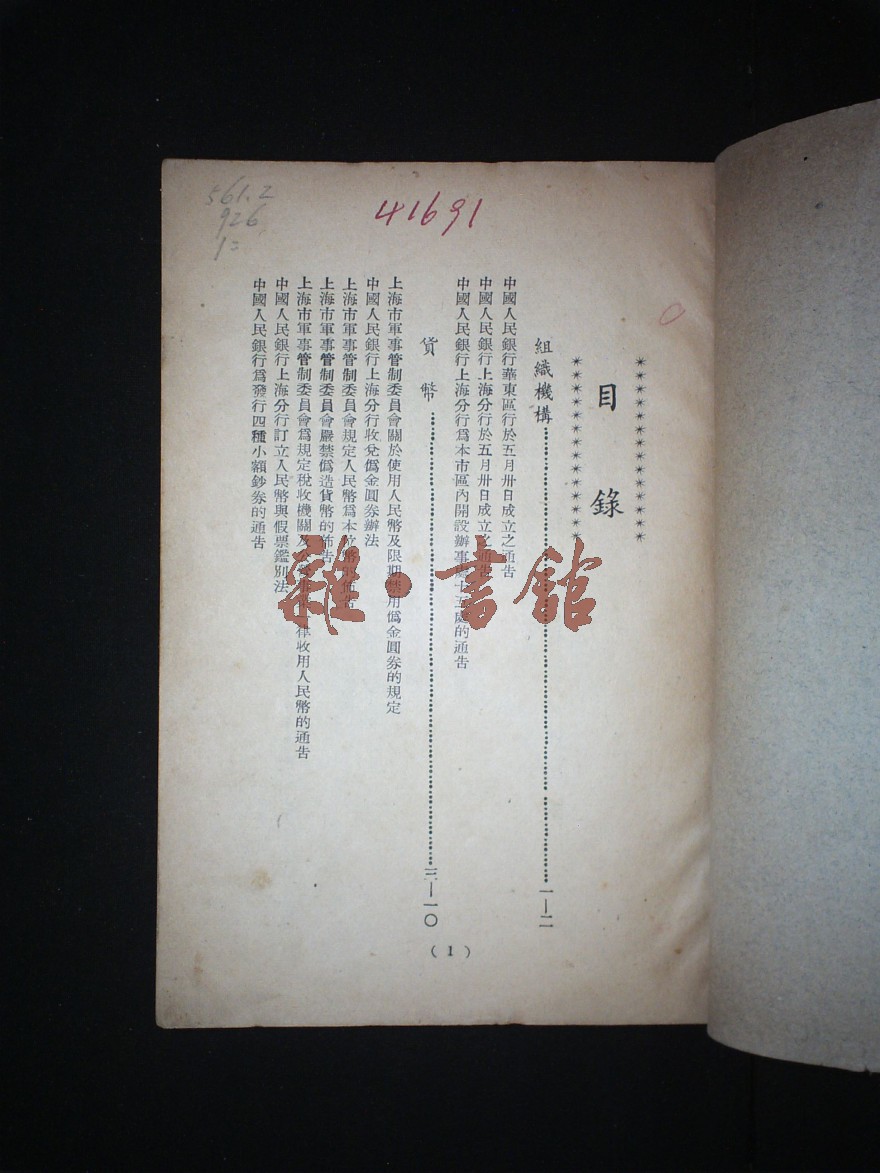 561.2
926
41691
目錄
組織機構 一—二
中國人民銀行華東區行於五月卅日成立之通告
中國人民銀行上海分行於五月卅日成立之通告
中國人民銀行上海分行爲本市區內開設辦事處十五處的通告
貨幣 三—一〇
上海市軍事管制委員會關於使用人民幣及限期禁用僞金圓券的規定
中國人民銀行上海分行收兌僞金圓券辦法
上海市軍事管制委員會規定人民幣爲本位幣的佈告
上海市軍事管制委員會嚴禁僞造貨幣的佈告
上海市軍事管制委員會爲規定稅收機關及 律收用人民幣的通告
中國人民銀行上海分行訂立人民幣與假票鑑別法
中國人民銀行爲發行四種小額鈔券的通告
(1)
雜·書館